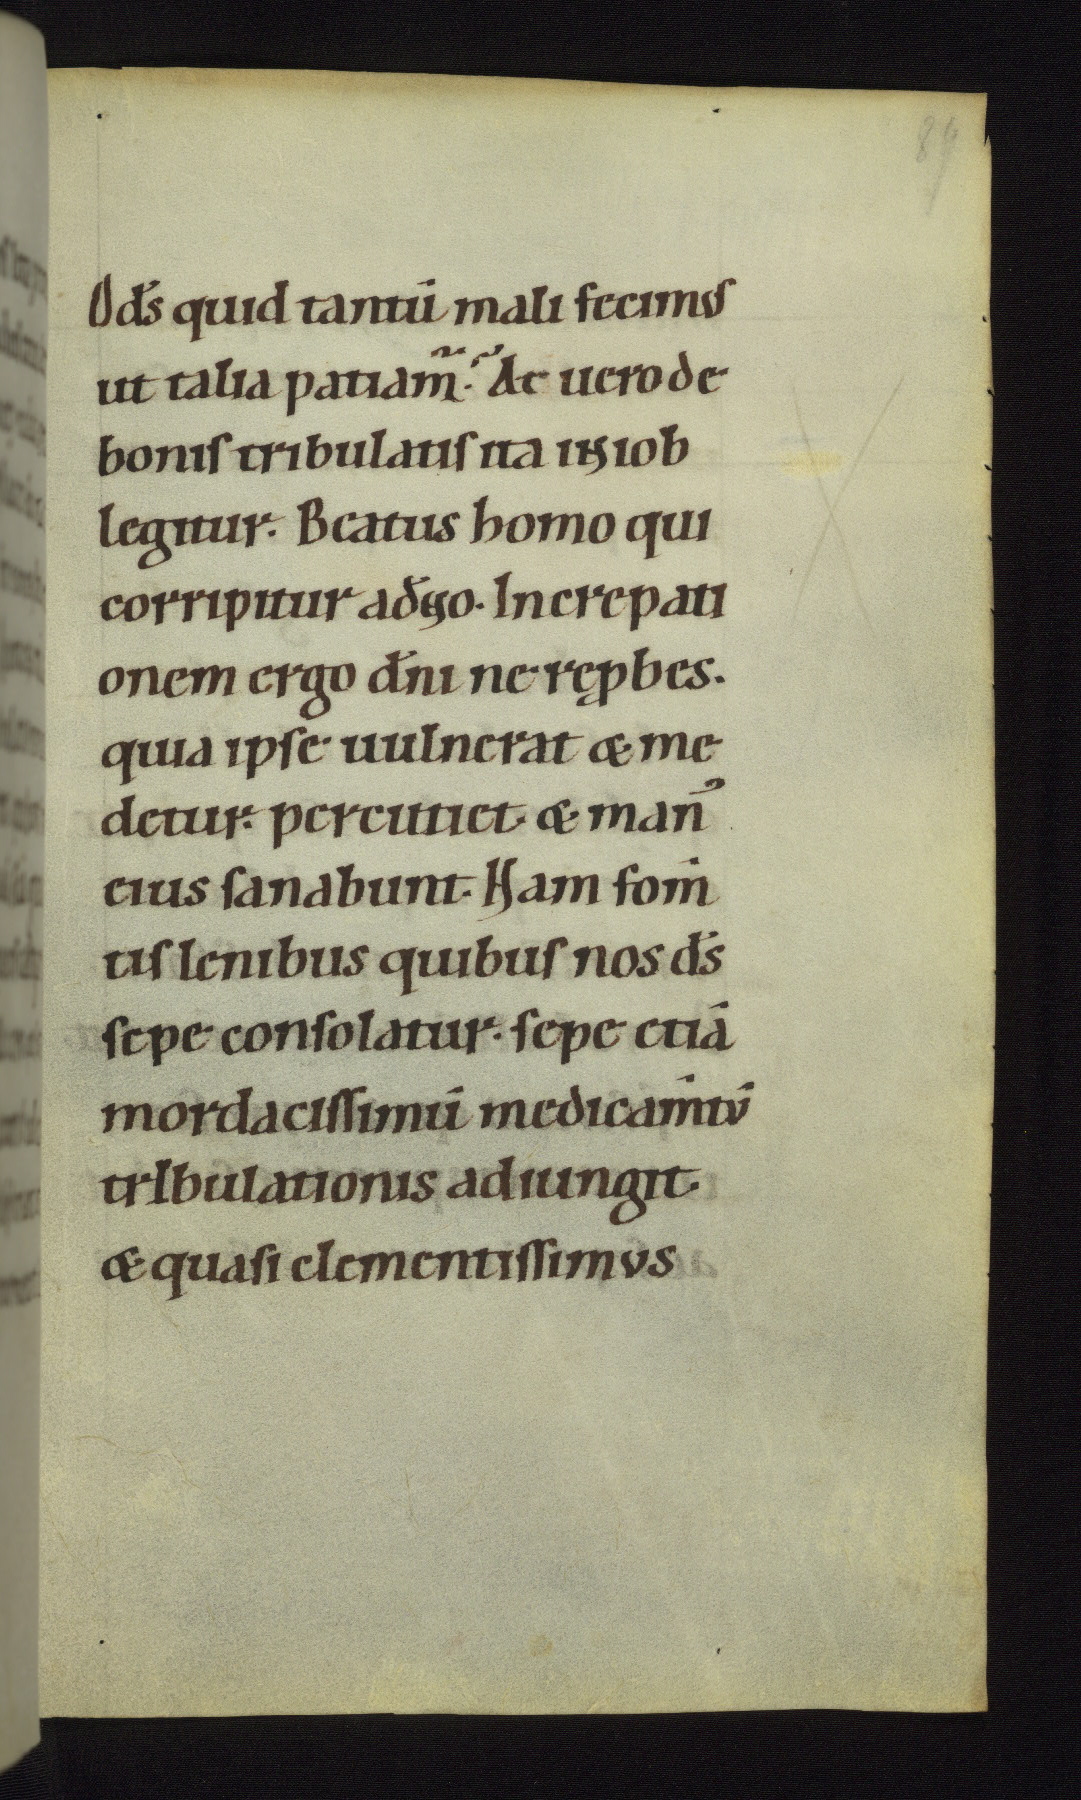 89
O ds̄ quid tantū mali fecimus
ut talia patiam̃. Ac uero de
bonis tribulatis ita in iob
legitur. Beatus homo qui
corripitur a dn̄o. Increpati
onem ergo dn̄i ne reꝓbes.
quia ipse uulnerat & me
detur. percutiet & man᾽
eius sanabunt. Nam fom̄
tis lenibus quibus nos ds̄
sepe consolatur. sepe etiā
mordacissimū medicam̄tū
trIbulationis adiungit.
& quasi clementissimus